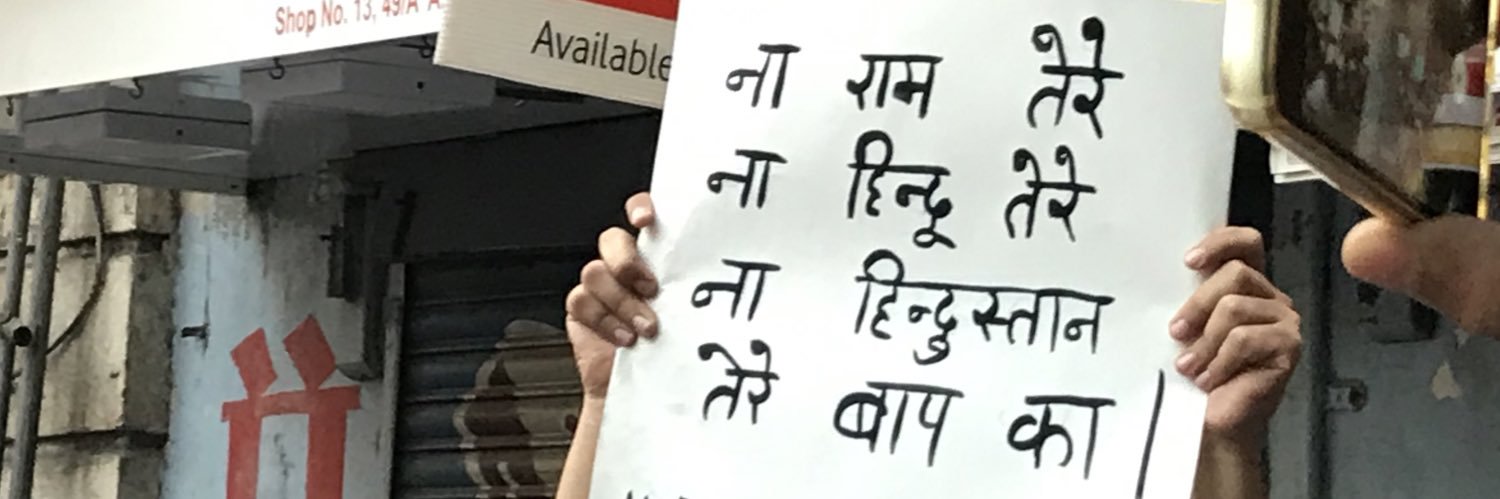 Shop No. 13, 49/A
Available
ना राम तेरे
ना हिन्दू तेरे
ना हिन्दुस्तान
तेरे बाप का।